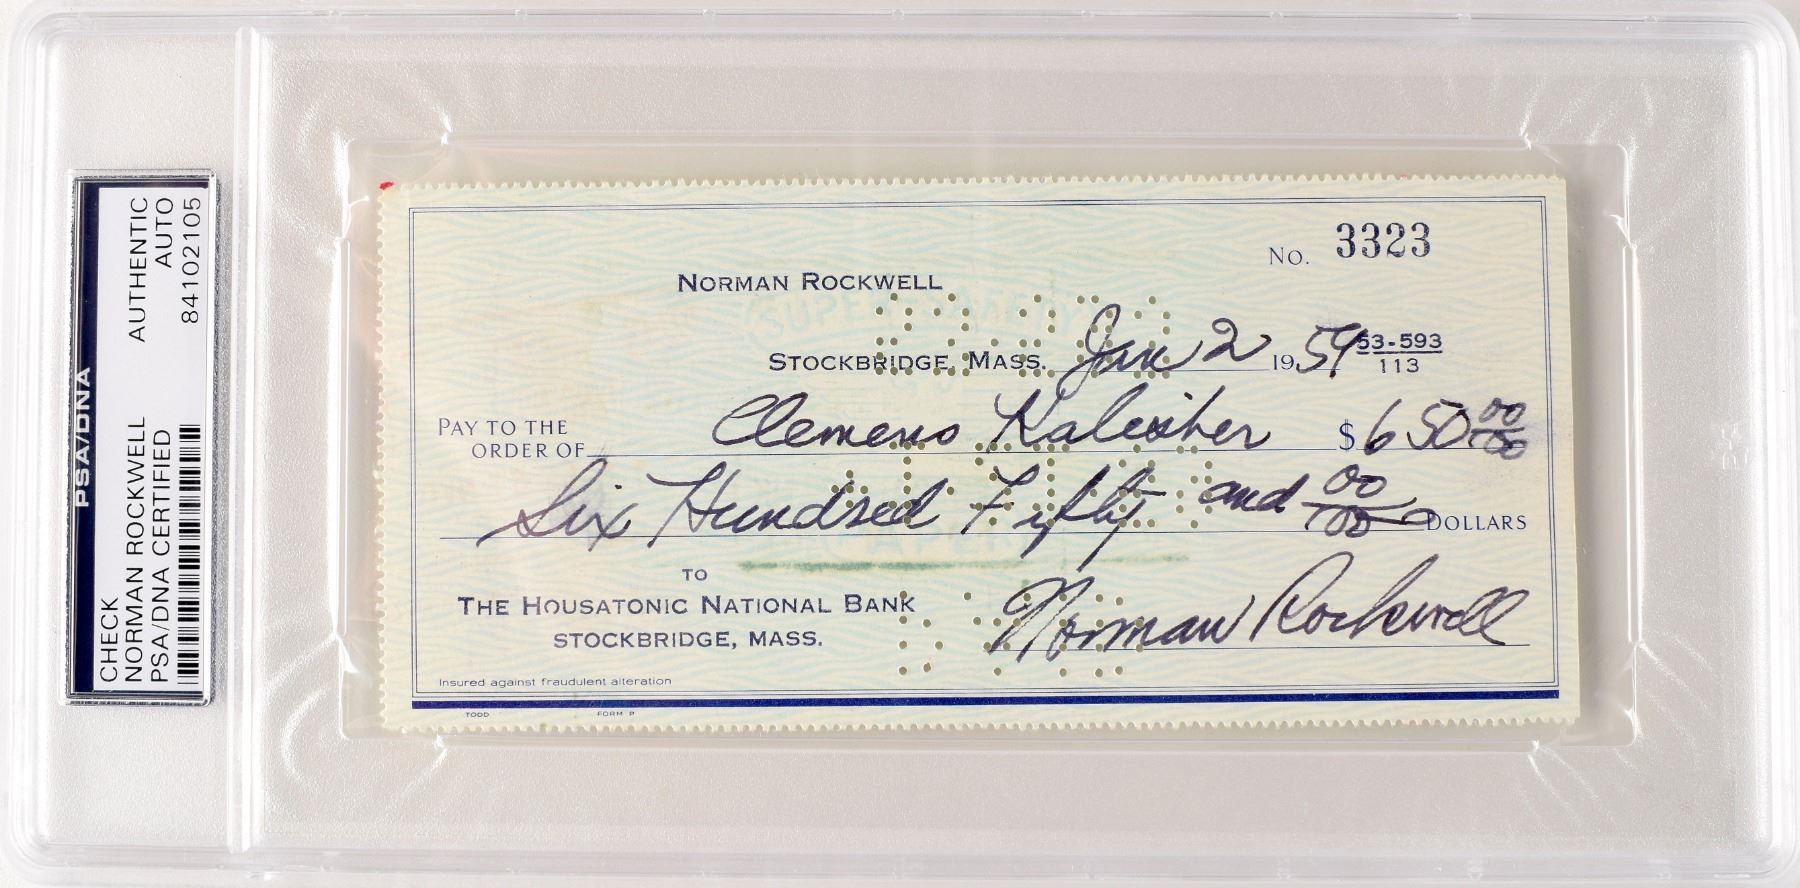 PSA/DNA
CHECK AUTHENTIC
NORMAN ROCKWELL AUTO
PSA/DNA CERTIFIED 84102105
No. 3323
NORMAN ROCKWELL
SUPER SAFETY
STOCKBRIDGE, MASS. Jan 2 1959 53-593
113
PAY TO THE
ORDER OF Clemens Kalischer $ 650 00/100
Six Hundred Fifty and 00/100 DOLLARS
PAPER
TO
THE HOUSATONIC NATIONAL BANK
STOCKBRIDGE, MASS.
Norman Rockwell
Insured against fraudulent alteration
TODD FORM P